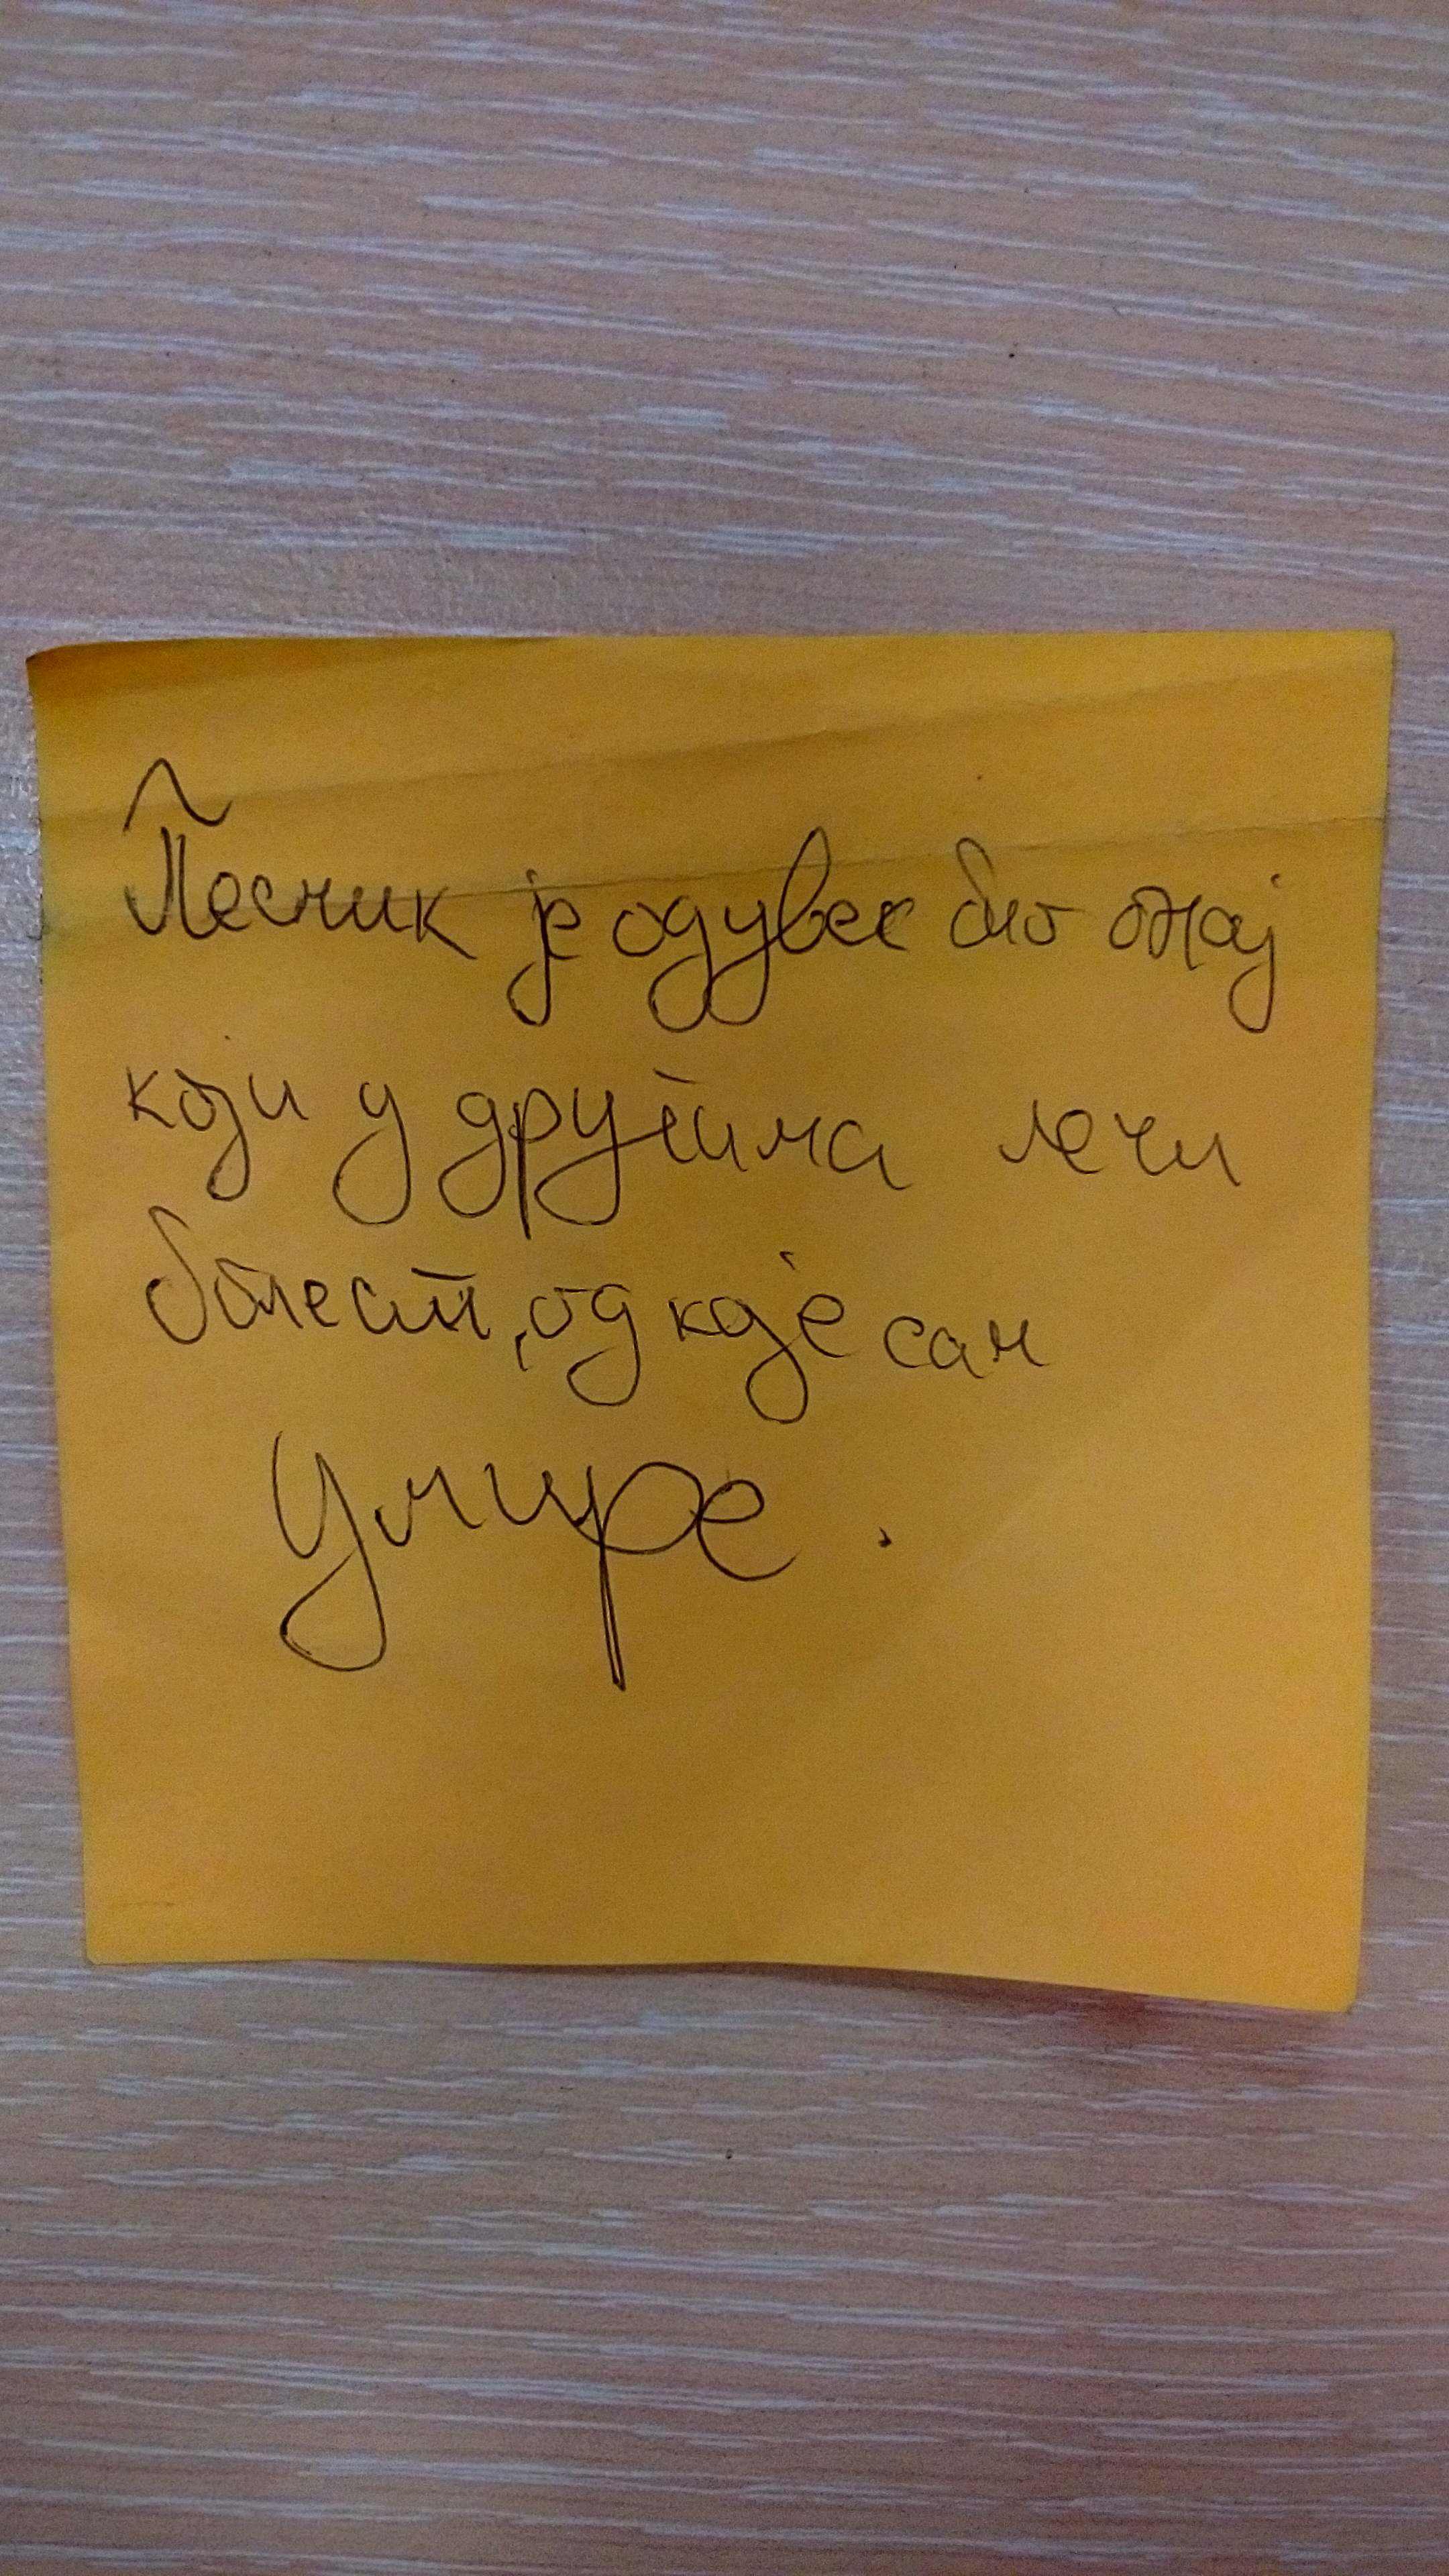 Песник је одувек био онај
који у другима лечи
болест, од које сам
Умире.